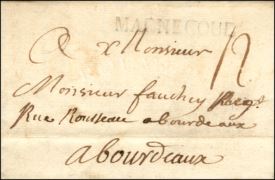 MAGNECOUR
A Monsieur
12
Monsieur fauchey
Rue Rousseau abourdeaux
abourdeaux